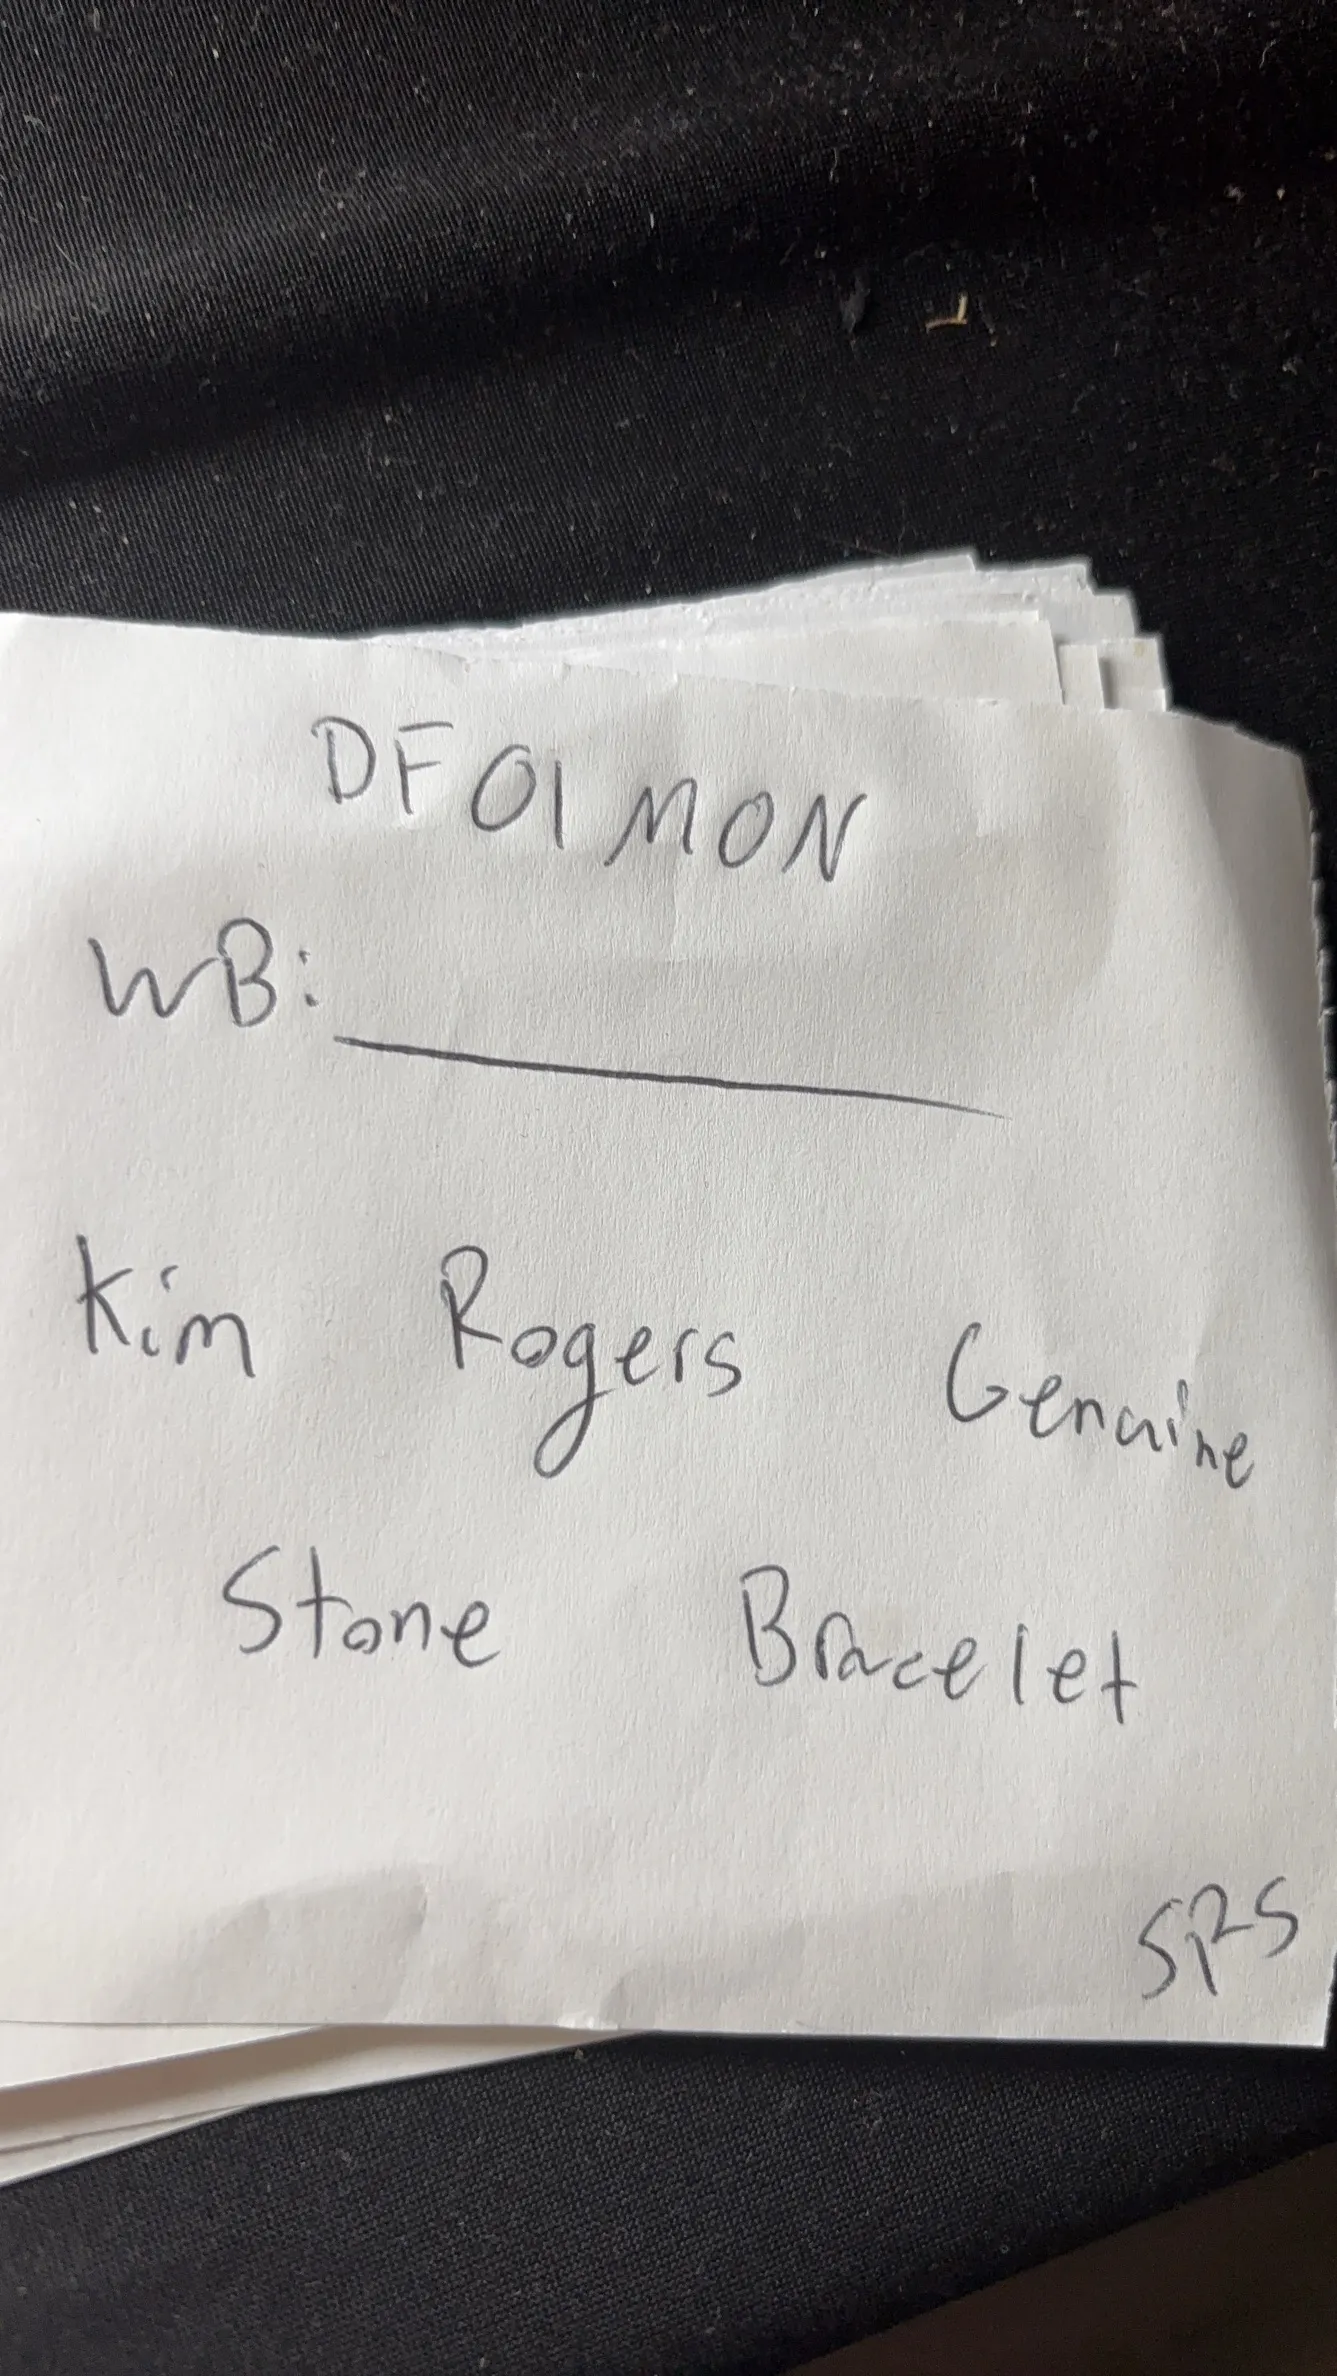 DF01MON
WB:
Kim Rogers Genuine
Stone Bracelet
SPS